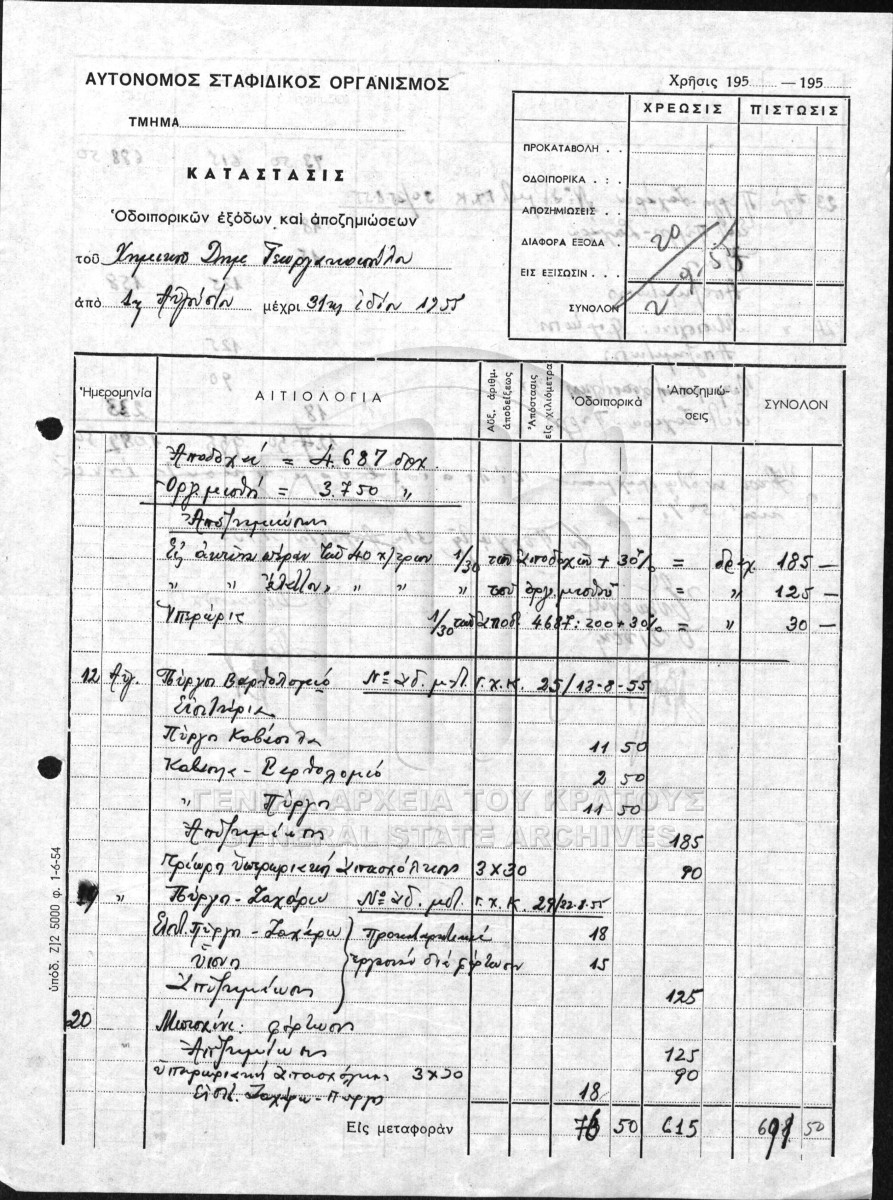 ΑΥΤΟΝΟΜΟΣ ΣΤΑΦΙΔΙΚΟΣ ΟΡΓΑΝΙΣΜΟΣ
ΤΜΗΜΑ
ΚΑΤΑΣΤΑΣΙΣ
Ὁδοιπορικῶν ἐξόδων καὶ ἀποζημιώσεων
τοῦ Χημικοῦ Δημ. Γεωργακοπούλου
ἀπὸ 1ης Αὐγούστου μέχρι 31ης ἰδίου 1955
Χρῆσις 195 — 195
ΧΡΕΩΣΙΣ ΠΙΣΤΩΣΙΣ
ΠΡΟΚΑΤΑΒΟΛΗ . .
ΟΔΟΙΠΟΡΙΚΑ . : .
ΑΠΟΖΗΜΙΩΣΕΙΣ . .
ΔΙΑΦΟΡΑ ΕΞΟΔΑ . .
ΕΙΣ ΕΞΙΣΩΣΙΝ . . .
ΣΥΝΟΛΟΝ
Ἡμερομηνία ΑΙΤΙΟΛΟΓΙΑ Αὔξ. ἀριθμ. ἀποδείξεως Ἀπόστασις εἰς χιλιόμετρα Ὁδοιπορικὰ Ἀποζημιώσεις ΣΥΝΟΛΟΝ
Ἀποδοχαί = 4.687 δρχ.
Ὀργ. μισθός = 3.750 "
Ἀποζημιώσεις
Εἰς ἀκτῖνα πέραν τῶν 40 χ/τρων 1/30 τῶν ἀποδοχῶν + 30% = δρχ. 185 —
" " " " " τοῦ ὀργ. μισθοῦ = " 125 —
Ὑπερωρίες 1/30 τῶν ἀποδ. 4687:200 + 30% = " 30 —
12 Αὐγ. Πύργου Βαρθολομιό Νο ἀδ. μετ. Γ.Χ.Κ. 25/13-8-55
Εἰσιτήρια
Πύργου Καβάσιλα 11 50
Καβάσιλα - Βαρθολομιό 2 50
" Πύργου 11 50
Ἀποζημίωσις 185
Τρίωρη ὑπερωριακή ἀπασχόλησις 3 Χ 30 90
" Πύργου - Ζαχάρω Νο ἀδ. μετ. Γ.Χ.Κ. 29/22.8.55
Εἰσιτ. Πύργου - Ζαχάρω προκαταρκτικαί 18
ἐργασίαι διά φόρτωσιν 15
Ἀποζημίωσις 125
20 φόρτωσις
" Ἀποζημίωσις 125
ὑπερωριακή ἀπασχόλησις 3 Χ 30 90
Εἰσιτ. Ζαχάρω - Πύργου 18
Εἰς μεταφορὰν 76 50 615 691 50
ὑπόδ. Ζ)2 5000 φ. 1-6-54
ΓΕΝΙΚΑ ΑΡΧΕΙΑ ΤΟΥ ΚΡΑΤΟΥΣ
GENERAL STATE ARCHIVES